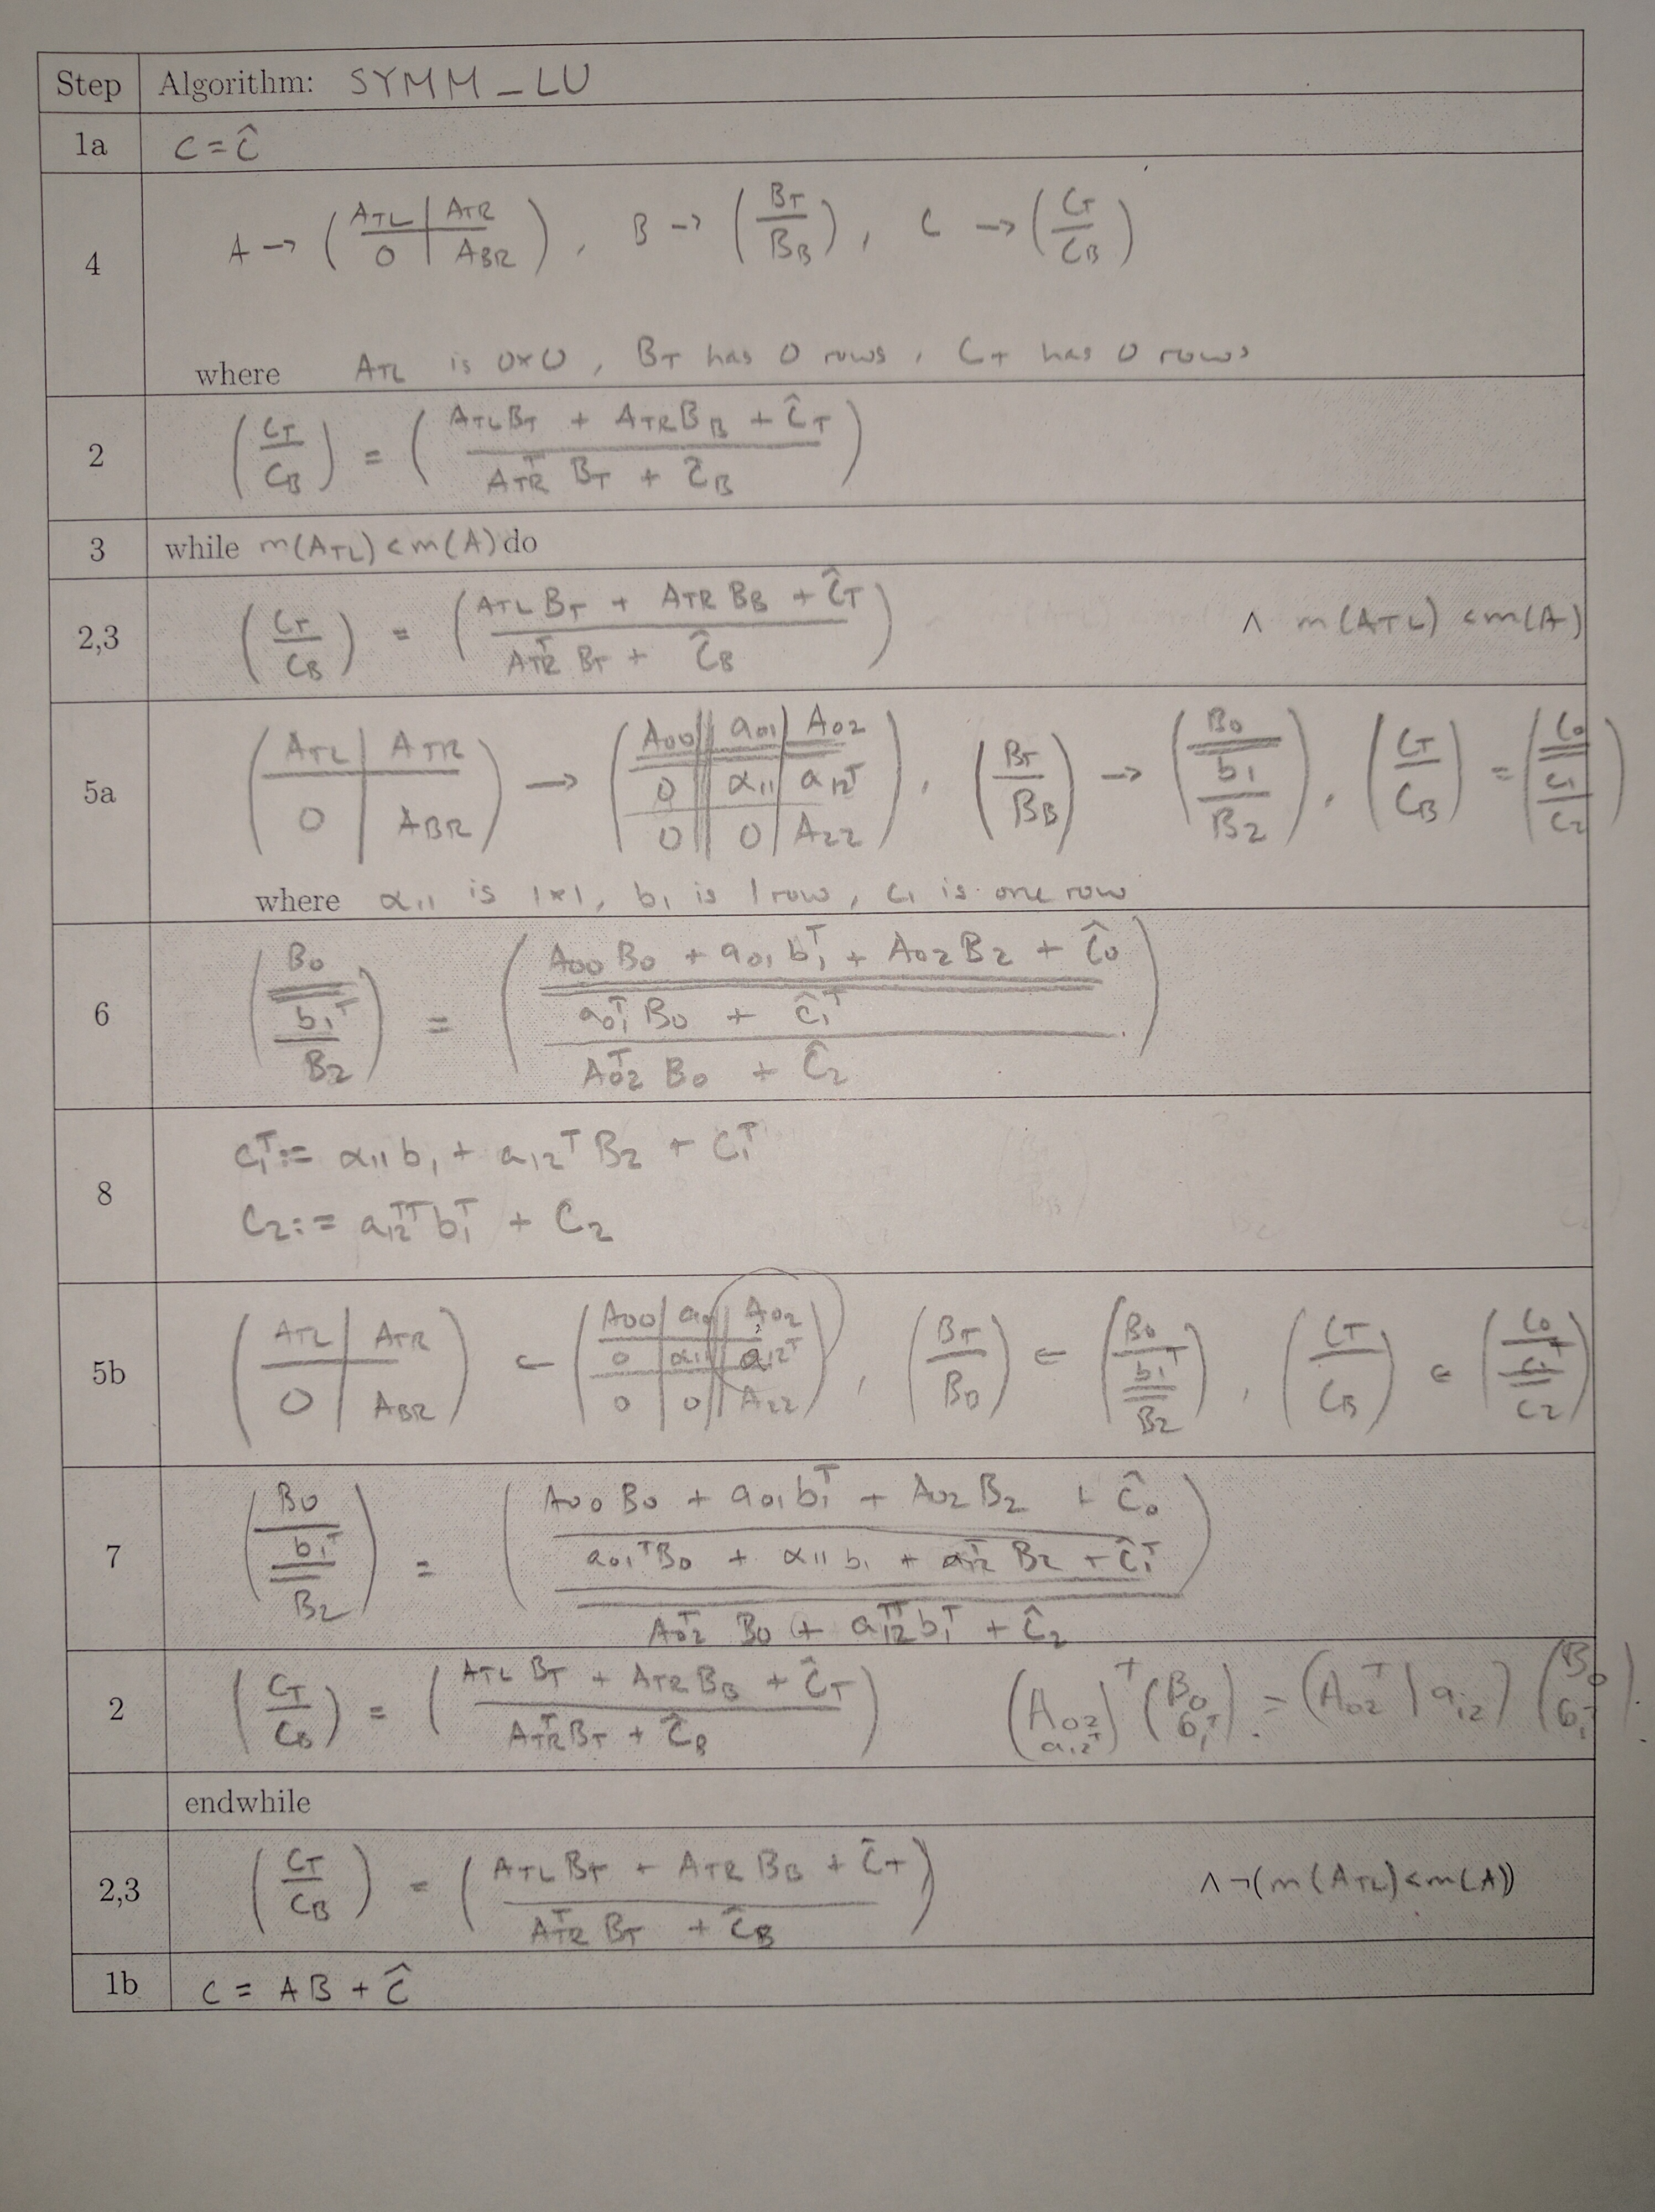 Step Algorithm: SYMM_LU
1a C = Ĉ
4 A → ( A_TL | A_TR / 0 | A_BR ), B → ( B_T / B_B ), C → ( C_T / C_B )
where A_TL is 0x0, B_T has 0 rows, C_T has 0 rows
2 ( C_T / C_B ) = ( A_TL B_T + A_TR B_B + Ĉ_T / A_TR^T B_T + Ĉ_B )
3 while m(A_TL) < m(A) do
2,3 ( C_T / C_B ) = ( A_TL B_T + A_TR B_B + Ĉ_T / A_TR^T B_T + Ĉ_B ) ∧ m(A_TL) < m(A)
5a ( A_TL | A_TR / 0 | A_BR ) → ( A_00 || a_01 | A_02 // 0 || α_11 | a_12^T / 0 || 0 | A_22 ), ( B_T / B_B ) → ( B_0 // b_1 / B_2 ), ( C_T / C_B ) = ( C_0 // c_1 / C_2 )
where α_11 is 1x1, b_1 is 1 row, c_1 is one row
6 ( B_0 // b_1^T / B_2 ) = ( A_00 B_0 + a_01 b_1^T + A_02 B_2 + Ĉ_0 // a_01^T B_0 + ĉ_1^T / A_02^T B_0 + Ĉ_2 )
8 c_1^T := α_11 b_1 + a_12^T B_2 + c_1^T
C_2 := a_12^TT b_1^T + C_2
5b ( A_TL | A_TR / 0 | A_BR ) ← ( A_00 | a_01 || A_02 / 0 | α_11 || a_12^T / 0 | 0 || A_22 ), ( B_T / B_B ) ← ( B_0 / b_1^T // B_2 ), ( C_T / C_B ) ← ( C_0 / c_1^T // C_2 )
7 ( B_0 / b_1^T // B_2 ) = ( A_00 B_0 + a_01 b_1^T + A_02 B_2 + Ĉ_0 / a_01^T B_0 + α_11 b_1 + a_12^T B_2 + ĉ_1^T // A_02^T B_0 + a_12^TT b_1^T + Ĉ_2 )
2 ( C_T / C_B ) = ( A_TL B_T + A_TR B_B + Ĉ_T / A_TR^T B_T + Ĉ_B ) ( A_02 / a_12^T )^T ( B_0 / b_1^T ) = ( A_02^T | a_12 ) ( B_0 / b_1^T )
endwhile
2,3 ( C_T / C_B ) = ( A_TL B_T + A_TR B_B + Ĉ_T / A_TR^T B_T + Ĉ_B ) ∧ ¬(m(A_TL) < m(A))
1b C = AB + Ĉ